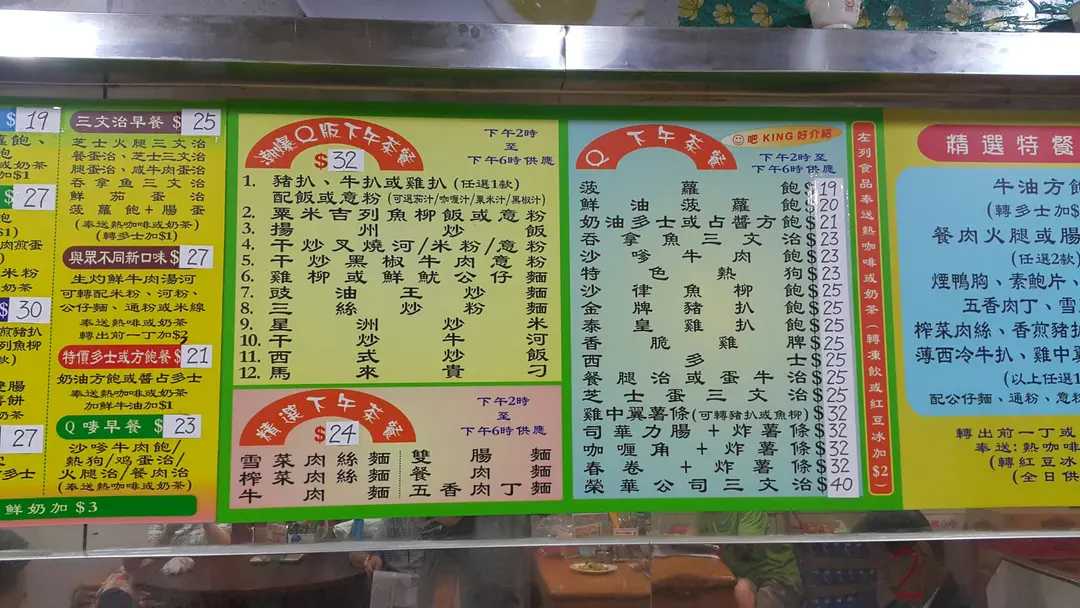 $ 19
奶茶
加$1
$ 27
$1)
肉煎蛋
米粉
奶茶
$ 30
煎豬扒
列魚柳
奶茶
雙腸
奶茶
27
多士
三文治早餐 $ 25
芝士火腿三文治
餐蛋治、芝士三文治
腿蛋治、咸牛肉蛋治
吞拿魚三文治
鮮茄蛋治
菠蘿飽+腸蛋
(奉送熱咖啡或奶茶)
(轉多士加$1)
與眾不同新口味 $ 27
生灼鮮牛肉湯河
可轉配米粉、河粉、
公仔麵、通粉或米線
奉送熱咖啡或奶茶
轉出前一丁加$2
特價多士或方飽餐 $ 21
奶油方飽或醬占多士
奉送熱咖啡或奶茶
加鮮牛油加$1
Q嗲早餐 $ 23
沙嗲牛肉飽/
熱狗/鸡蛋治/
火腿治/餐肉治
(奉送熱咖啡或奶茶)
鮮奶加 $3
潮爆Q版下午茶餐
$ 32
下午2時
至
下午6時供應
1. 豬扒、牛扒或雞扒 (任選1款)
配飯或意粉 (可選茄汁/咖喱汁/粟米汁/黑椒汁)
2. 粟米吉列魚柳飯或意粉
3. 揚州炒飯
4. 干炒叉燒河/米粉/意粉
5. 干炒黑椒牛肉意粉
6. 雞柳或鮮魷公仔麵
7. 豉油王炒麵
8. 三絲炒粉
9. 星洲炒米
10. 干炒牛河
11. 西式炒飯
12. 馬來貴刁
精選下午茶餐
$ 24
下午2時
至
下午6時供應
雪菜肉絲麵
榨菜肉絲麵
牛肉麵
雙腸麵
餐肉麵
五香肉丁麵
Q下午茶餐
吧 KING 好介紹
下午2時
至
下午6時供應
菠蘿飽 $ 19
鮮油菠蘿飽 $ 20
奶油多士或占醬方飽 $ 21
吞拿魚三文治 $ 23
沙嗲牛肉飽 $ 23
特色熱狗 $ 23
沙律魚柳飽 $ 25
金牌豬扒飽 $ 25
泰皇雞扒飽 $ 25
香脆雞髀 $ 25
西多士 $ 25
餐腿治或蛋牛治 $ 25
芝士蛋三文治 $ 25
雞中翼薯條(可轉豬扒或魚柳) $ 32
司華力腸+炸薯條 $ 32
咖喱角+炸薯條 $ 32
春卷+炸薯條 $ 32
榮華公司三文治 $ 40
左列食品奉送熱咖啡或奶茶(轉凍飲或紅豆冰加$2)
精選特餐
牛油方飽
(轉多士加$
餐肉火腿或腸
(任選2款)
煙鴨胸、素鮑片、
五香肉丁、雪
榨菜肉絲、香煎豬扒
薄西冷牛扒、雞中翼
(以上任選1
配公仔麵、通粉、意粉
轉出前一丁或
奉送:熱咖
(轉紅豆冰
(全日供